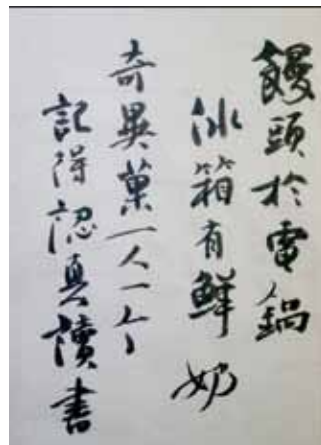 饅頭於電鍋
冰箱有鮮奶
奇異菓一人一个
記得認真讀書